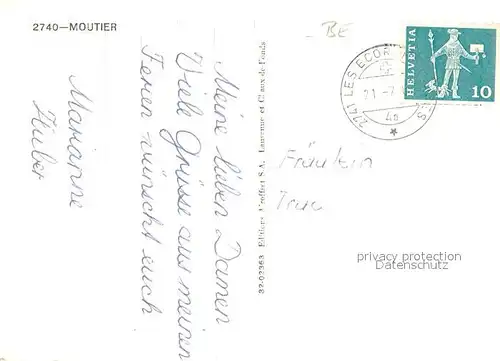 2740—MOUTIER
BE
HELVETIA
10
2741 LES ECOR
21.-7.
Meine lieben Damen
Viele Grüsse aus meinen
Ferien wünscht euch
Marianne
Huber
32-02363 Editions Groffort S.A., Lausanne et Chaux-de-Fonds
Fräulein
privacy protection
Datenschutz